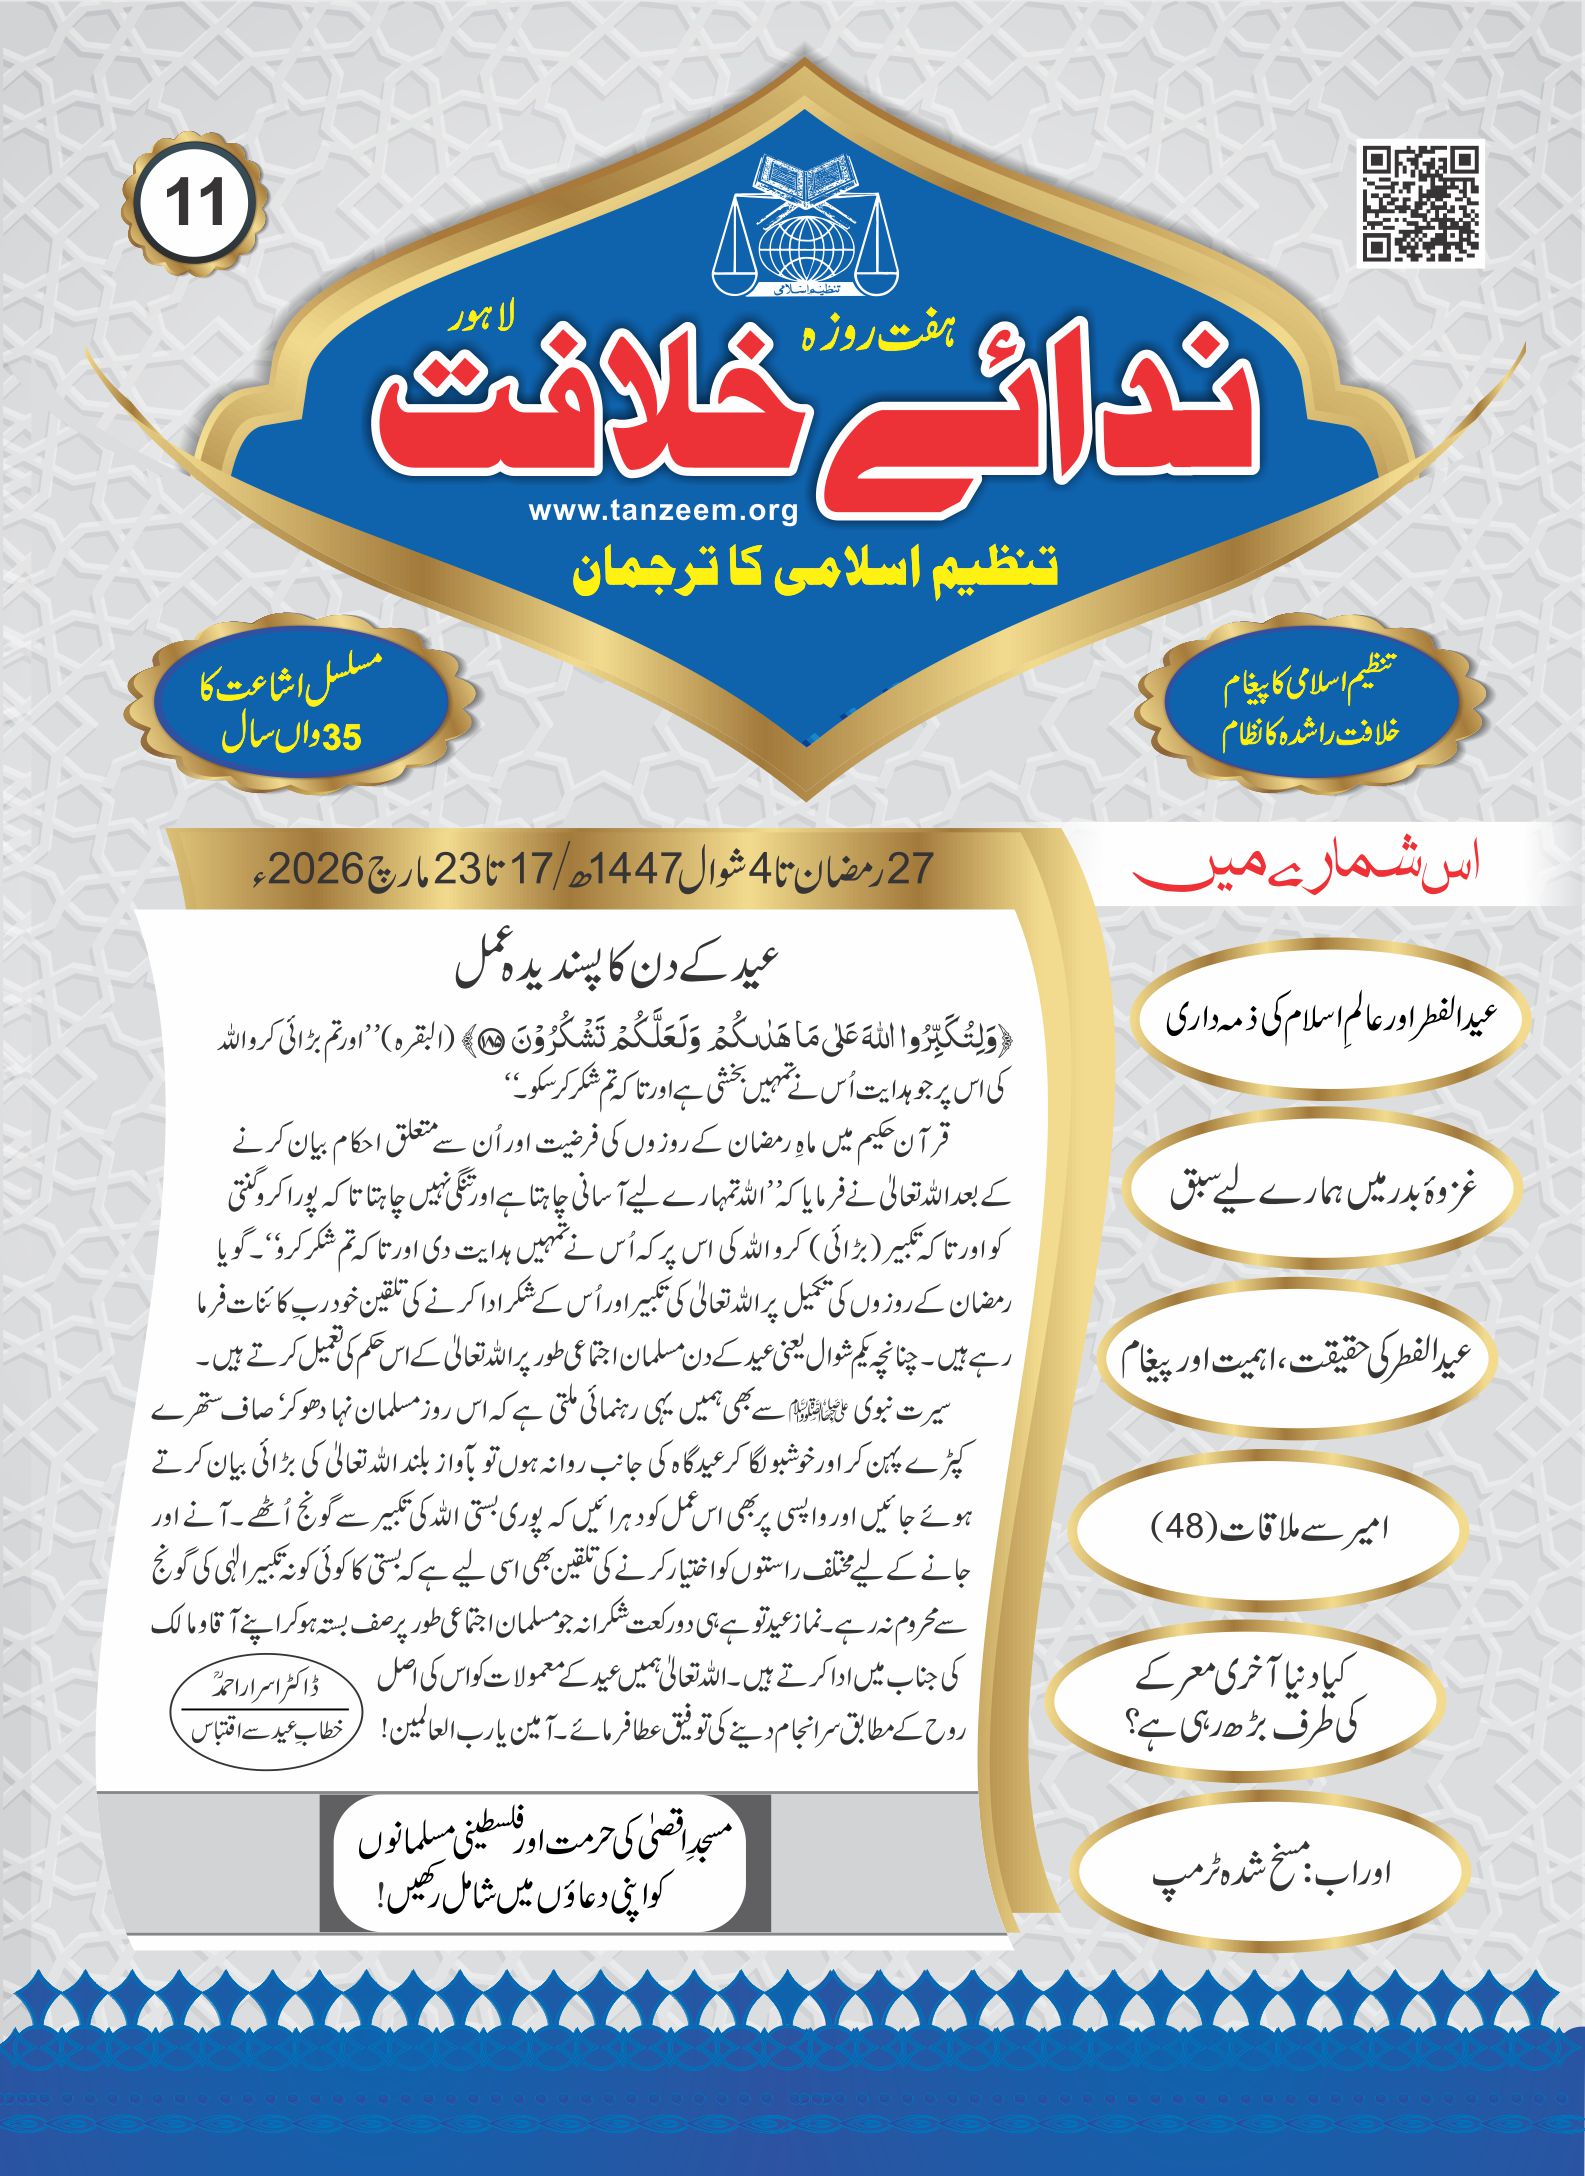 11
تنظیم اسلامی
ہفت روزہ
لاہور
ندائے خلافت
www.tanzeem.org
تنظیم اسلامی کا ترجمان
تنظیم اسلامی کا پیغام
خلافت راشدہ کا نظام
مسلسل اشاعت کا
35واں سال
27رمضان تا 4شوال 1447ھ/17 تا 23 مارچ 2026ء
عید کے دن کا پسندیدہ عمل
﴿وَلِتُكَبِّرُوا اللّٰهَ عَلٰى مَا هَدٰىكُمْ وَلَعَلَّكُمْ تَشْكُرُوْنَ ۝۱۸۵﴾ (البقرہ) ’’اور تم بڑائی کرو اللہ
کی اس پر جو ہدایت اُس نے تمہیں بخشی ہے اور تاکہ تم شکر کر سکو۔‘‘
قرآن حکیم میں ماہِ رمضان کے روزوں کی فرضیت اور اُن سے متعلق احکام بیان کرنے
کے بعد اللہ تعالیٰ نے فرمایا کہ ’’اللہ تمہارے لیے آسانی چاہتا ہے اور تنگی نہیں چاہتا تاکہ پورا کرو گنتی
کو اور تاکہ تکبیر (بڑائی) کرو اللہ کی اس پر کہ اُس نے تمہیں ہدایت دی اور تاکہ تم شکر کرو‘‘۔ گویا
رمضان کے روزوں کی تکمیل پر اللہ تعالیٰ کی تکبیر اور اُس کے شکر ادا کرنے کی تلقین خود ربِ کائنات فرما
رہے ہیں۔ چنانچہ یکم شوال یعنی عید کے دن مسلمان اجتماعی طور پر اللہ تعالیٰ کے اس حکم کی تعمیل کرتے ہیں۔
سیرت نبوی ﷺ سے بھی ہمیں یہی رہنمائی ملتی ہے کہ اس روز مسلمان نہا دھو کر‘ صاف ستھرے
کپڑے پہن کر اور خوشبو لگا کر عیدگاہ کی جانب روانہ ہوں تو بآواز بلند اللہ تعالیٰ کی بڑائی بیان کرتے
ہوئے جائیں اور واپسی پر بھی اس عمل کو دہرائیں کہ پوری بستی اللہ کی تکبیر سے گونج اُٹھے۔ آنے اور
جانے کے لیے مختلف راستوں کو اختیار کرنے کی تلقین بھی اسی لیے ہے کہ بستی کا کوئی کونہ تکبیر الٰہی کی گونج
سے محروم نہ رہے۔ نماز عید تو ہے ہی دو رکعت شکرانہ جو مسلمان اجتماعی طور پر صف بستہ ہو کر اپنے آقا و مالک
کی جناب میں ادا کرتے ہیں۔ اللہ تعالیٰ ہمیں عید کے معمولات کو اس کی اصل
روح کے مطابق سرانجام دینے کی توفیق عطا فرمائے۔ آمین یا رب العالمین!
ڈاکٹر اسرار احمدؒ
خطابِ عید سے اقتباس
مسجدِ اقصیٰ کی حرمت اور فلسطینی مسلمانوں
کو اپنی دعاؤں میں شامل رکھیں!
اس شمارے میں
عید الفطر اور عالمِ اسلام کی ذمہ داری
غزوۂ بدر میں ہمارے لیے سبق
عید الفطر کی حقیقت، اہمیت اور پیغام
امیر سے ملاقات (48)
کیا دنیا آخری معرکے
کی طرف بڑھ رہی ہے؟
اور اب: مسخ شدہ ٹرمپ